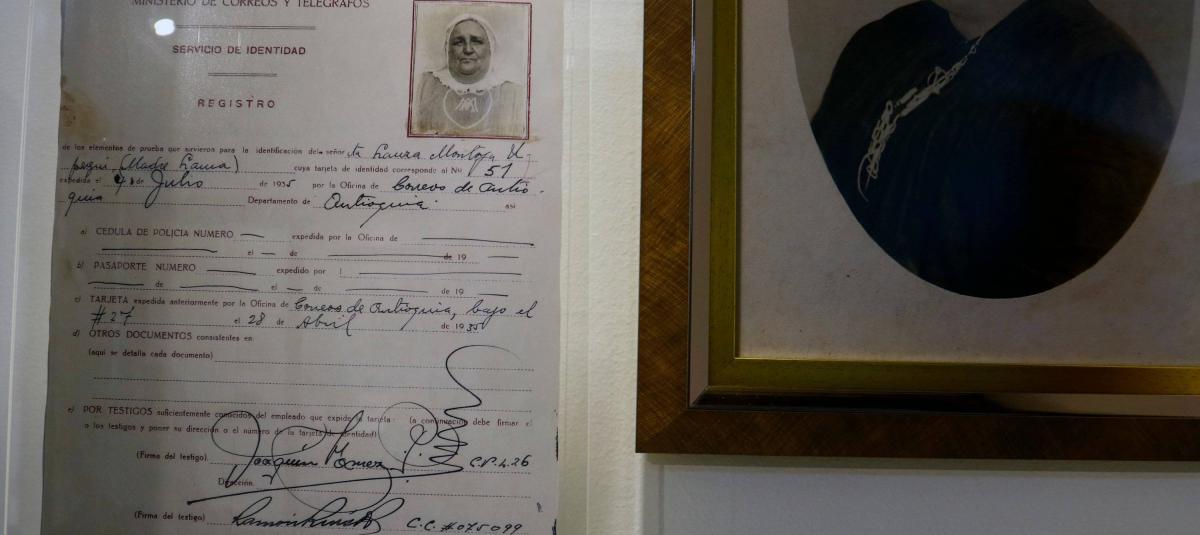 MINISTERIO DE CORREOS Y TELEGRAFOS
SERVICIO DE IDENTIDAD
REGISTRO
de los elementos de prueba que sirvieron para la identificación del señor ta Laura Montoya U
pegui, (Madre Laura) cuya tarjeta de identidad corresponde al No 51
expedida el de Julio de 1935 por la Oficina de Correos de Antio
quia Departamento de Antioquia. así
a) CEDULA DE POLICIA NUMERO expedida por la Oficina de
el de de 19
b) PASAPORTE NUMERO expedido por
de el de de 19
c) TARJETA expedida anteriormente por la Oficina de Correos de Antioquia, bajo el
#27 el 28 de Abril de 1935
d) OTROS DOCUMENTOS consistentes en:
(aquí se detalla cada documento)
e) POR TESTIGOS suficientemente conocidos del empleado que expide la tarjeta: (a continuación debe firmar el
o los testigos y poner su dirección o el número de la tarjeta de identidad)
(Firma del testigo) Joaquín C.P. 4.26
Dirección
(Firma del testigo) Ramón C.C. #075099